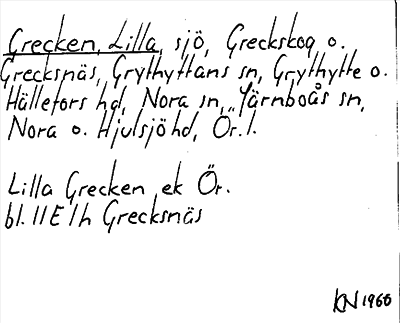 Grecken, Lilla, sjö, Greckskog o.
Grecksnäs, Grythyttans sn, Grythytte o.
Hällefors hd, Nora sn, Järnboås sn,
Nora o. Hjulsjö hd, Ör. l.
Lilla Grecken ek Ör.
bl. 11E 1h Grecksnäs
KN 1966